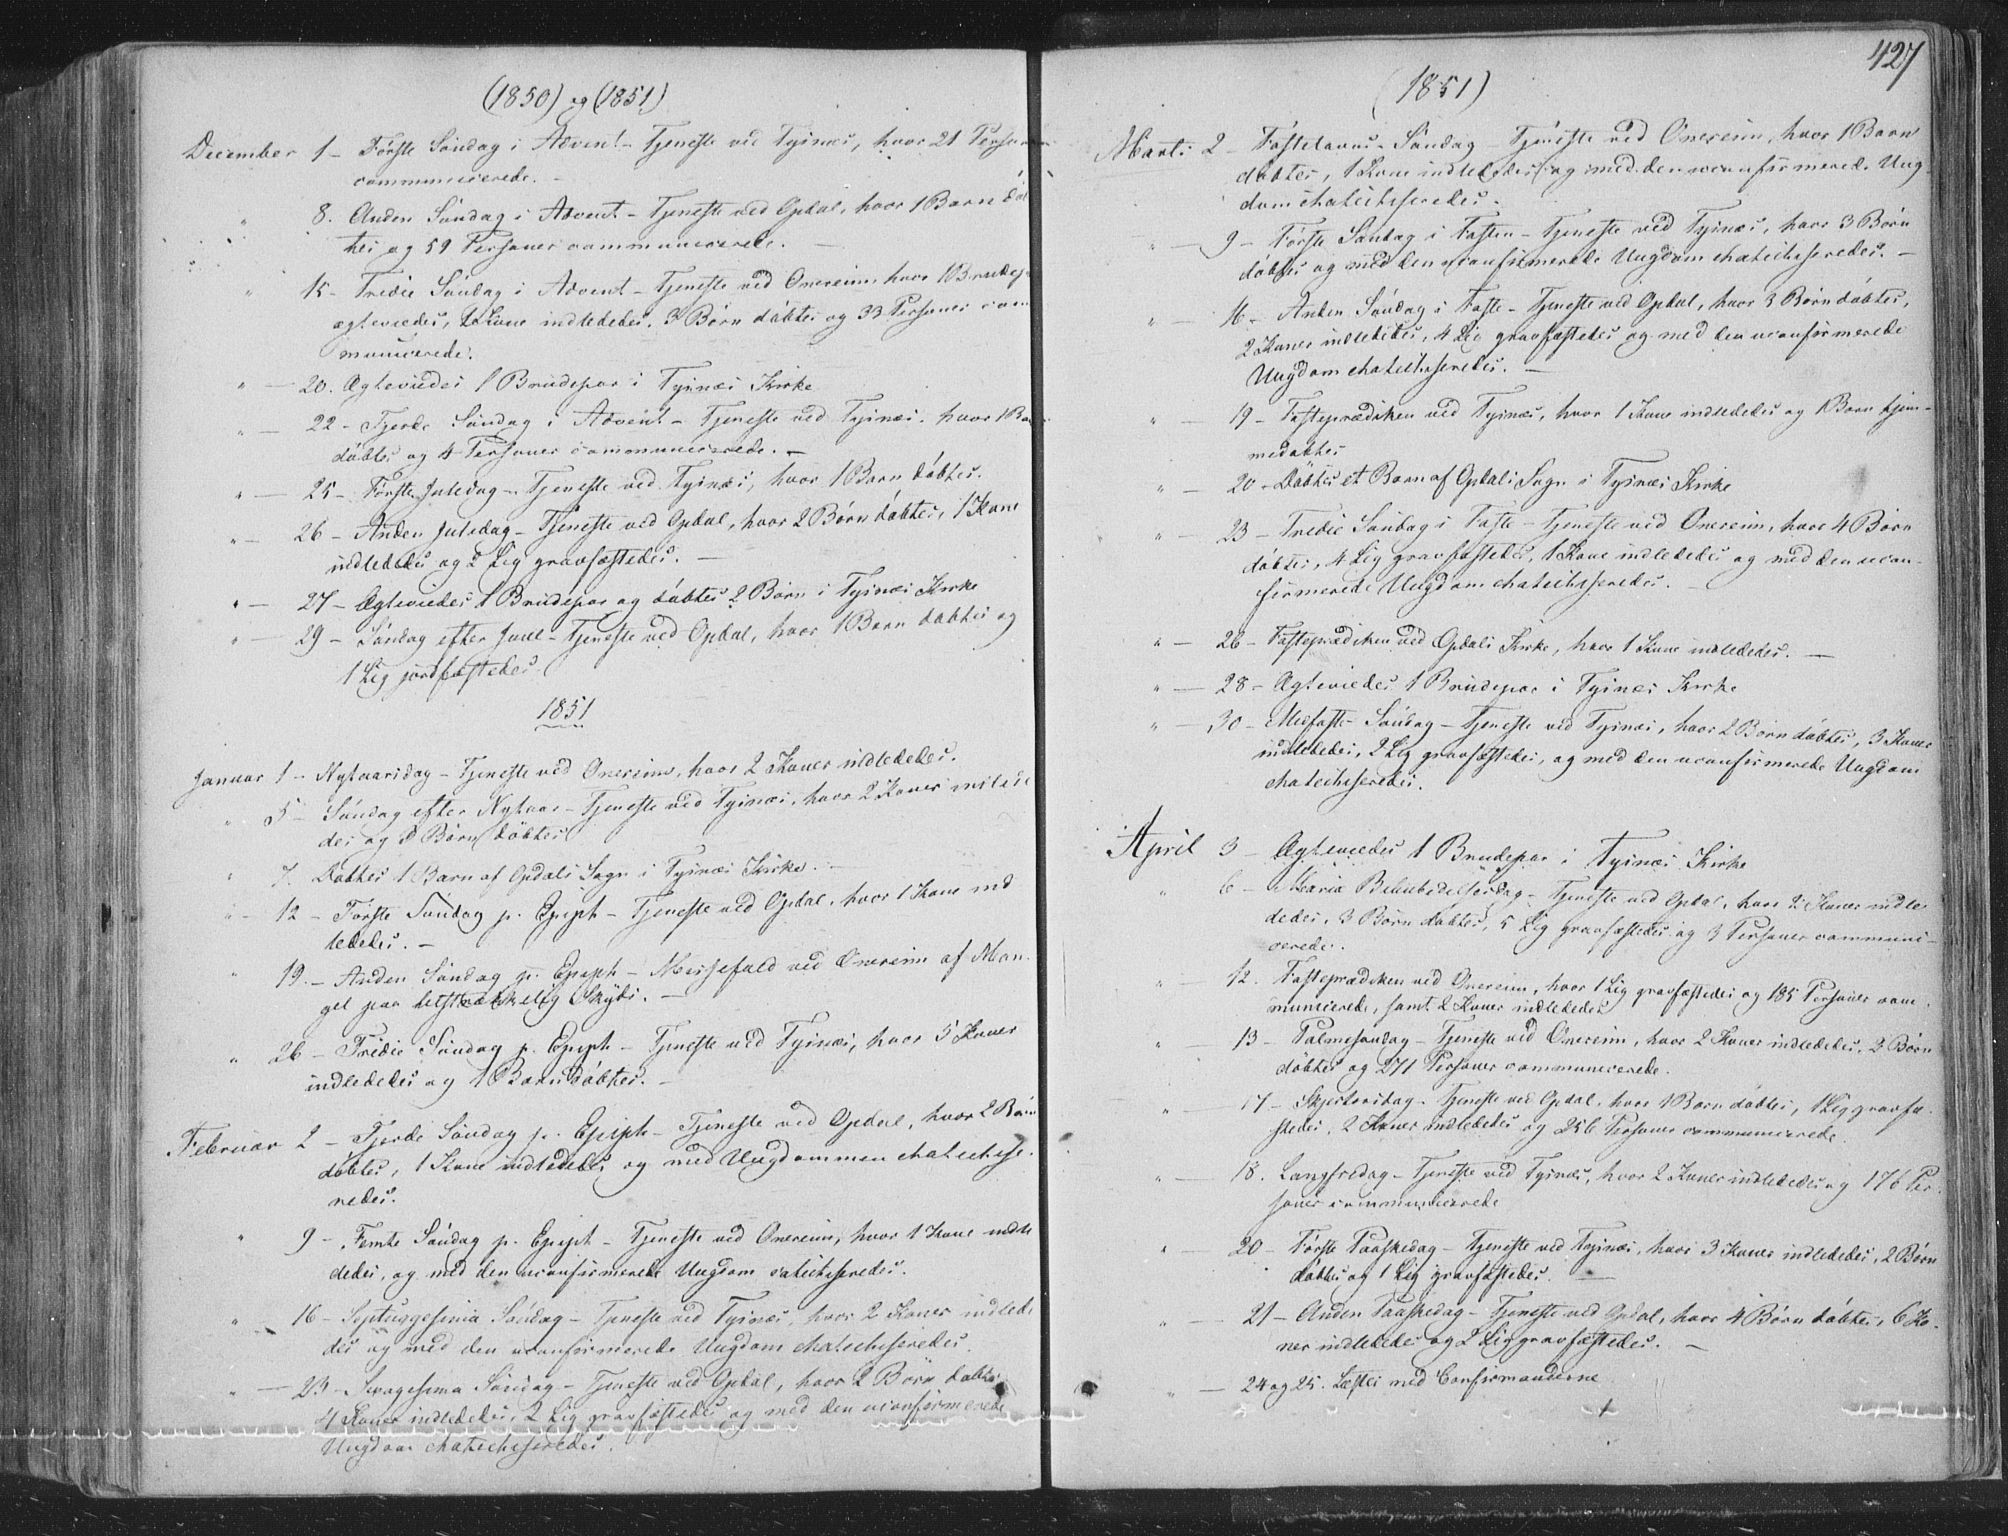 (1850) og (1851)
December 1 - Förste Söndag i Advent - Tjeneste ved Tysnæs, hvor 21 Personer
communicerede. -
" 8. Anden Söndag i Advent - Tjeneste ved Opdal, hvor 1 Barn döb-
tes og 59 Personer communicerede. -
" 15 - Tredie Söndag i Advent - Tjeneste ved Onereim, hvor 1 Brudepar
ægteviedes, 1 Kone indlededes, 3 Börn döbtes og 33 Personer com
municerede.
" - 20. Ægteviedes 1 Brudepar i Tysnæs Kirke
" - 22 - Fjerde Söndag i Advent - Tjeneste ved Tysnæs, hvor 1 Barn
döbtes og 4 Personer communicerede. -
" - 25 - Förste Juledag - Tjeneste ved Tysnæs, hvor 1 Barn döbtes.
" - 26 - Anden Juledag - Tjeneste ved Opdal, hvor 2 Börn döbtes, 1 Kone
indlededes og 2 Lig gravfæstedes. -
" - 27 - Ægteviedes 1 Brudepar og döbtes 2 Börn i Tysnæs Kirke
" - 29 - Söndag efter Juul - Tjeneste ved Opdal, hvor 1 Barn döbtes og
1 Lig jordfæstedes
1851
Januar 1 - Nytaarsdag - Tjeneste ved Onereim, hvor 2 Koner indlededes.
" 5 - Söndag efter Nytaar - Tjeneste ved Tysnæs, hvor 2 Koner indlede
des og 3 Börn döbtes
" 7. Döbtes 1 Barn af Opdals Sogn i Tysnæs Kirke. -
" - 12 - Förste Söndag p. Epiph - Tjeneste ved Opdal, hvor 1 Kone ind
lededes. -
" 19. - Anden Söndag p. Epiph - Messefald ved Onereim af Man-
gel paa tilstrækkelig Skyds. -
" 26 - Tredie Söndag p. Epiph - Tjeneste ved Tysnæs, hvor 5 Koner
indlededes og 1 Barn döbtes. -
Februar 2 - Fjerde Söndag p. Epiph - Tjeneste ved Opdal, hvor 2 Börn
döbtes, 1 Kone indlededes og med Ungdommen chatechise-
redes.
" 9 - Femte Söndag p. Epiph - Tjeneste ved Onereim, hvor 1 Kone indle
dedes, og med den uconfirmerede Ungdom catechiseredes.
" 16 - Septuagesima Söndag - Tjeneste ved Tysnæs, hvor 2 Koner indlede
des og med den uconfirmerede Ungdom chatechiseredes.
" - 23 - Sexagesima Söndag - Tjeneste ved Opdal, hvor 2 Börn döbtes
4 Koner indlededes, 2 Lig gravfæstedes og med den uconfirmerede
Ungdom chatechiseredes.
427
(1851)
Marts 2 - Fastelavns-Söndag - Tjeneste ved Onereim, hvor 1 Barn
döbtes, 1 Kone indlededes og med den uconfirmerede Ung
dom chatechiseredes.
" - 9 - Förste Söndag i Fasten - Tjeneste ved Tysnæs, hvor 3 Börn
döbtes og med den uconfirmerede Ungdom chatechiseredes. -
" - 16 - Anden Söndag i Faste - Tjeneste ved Opdal, hvor 3 Börn döbtes,
2 Koner indlededes, 4 Lig gravfæstedes og med den uconfirmerede
Ungdom chatechiseredes. -
" - 19 - Fasteprædiken ved Tysnæs, hvor 1 Kone indlededes og 1 Barn hjem-
medöbtes
" - 20 - Döbtes et Barn af Opdals Sogn i Tysnæs Kirke
" - 23 - Tredie Söndag i Faste - Tjeneste ved Onereim, hvor 4 Börn
döbtes, 4 Lig gravfæstedes, 1 Kone indlededes og med den ucon-
firmerede Ungdom chatechiseredes. -
" - 26 - Fasteprædiken ved Opdals Kirke, hvor 1 Kone indlededes. -
" - 28 - Ægteviedes 1 Brudepar i Tysnæs Kirke
" - 30 - Midfaste-Söndag - Tjeneste ved Tysnæs, hvor 2 Börn döbtes, 3 Koner
indlededes, 2 Lig gravfæstedes, og med den uconfirmerede Ungdom
chatechiseredes.
April 3 - Ægteviedes 1 Brudepar i Tysnæs Kirke
" 6 - Maria Bebudelsesdag - Tjeneste ved Opdal, hvor 2 Koner indle
dedes, 3 Börn döbtes, 5 Lig gravfæstedes og 3 Personer communi-
cerede.
" - 12. Fasteprædiken ved Onereim, hvor 1 Lig gravfæstedes og 185 Personer com
municerede, samt 2 Koner indlededes
" - 13 - Palmesöndag - Tjeneste ved Onereim, hvor 2 Koner indlededes, 2 Börn
döbtes og 271 Personer communicerede.
" - 17 - Skjertorsdag - Tjeneste ved Opdal, hvor 1 Barn döbtes, 1 Lig gravfæ-
stedes, 2 Koner indlededes og 256 Personer communicerede.
" - 18. Langfredag - Tjeneste ved Tysnæs, hvor 2 Koner indlededes og 176 Per-
soner communicerede
" - 20 - Förste Paaskedag - Tjeneste ved Tysnæs, hvor 3 Koner indlededes, 2 Börn
döbtes og 1 Lig gravfæstedes. -
" - 21 - Anden Paaskedag - Tjeneste ved Opdal, hvor 4 Börn döbtes, 6 Ko-
ner indledede og 2 Lig gravfæstedes. -
" - 24 og 25. Læstes med Confirmanderne